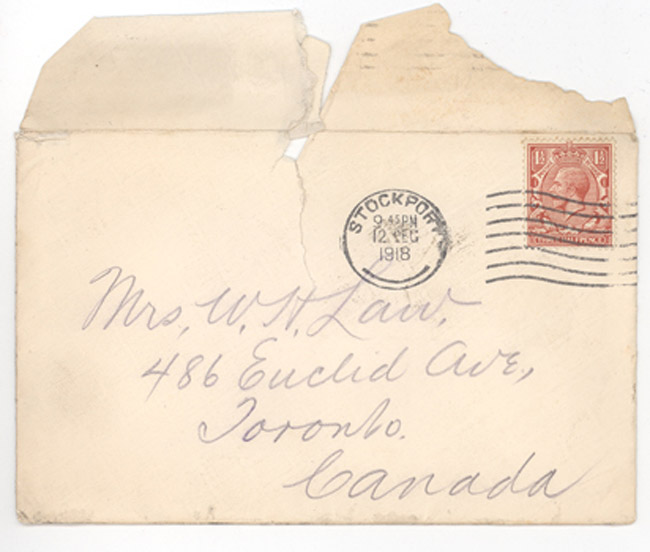 STOCKPORT
9.45PM
12 DEC
1918
1½ 1½
Mrs. W. H. Law.
486 Euclid Ave.,
Toronto.
Canada